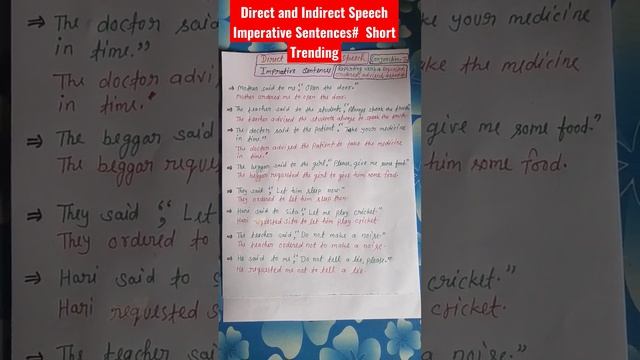 Direct and Indirect Speech
Imperative Sentences# Short
Trending
Direct
Speech
Imprative Sentences
⇒ Mother said to me, "Open the door."
Mother ordered me to open the door.
⇒ The teacher said to the students, "Always speak the truth."
The teacher advised the students always to speak the truth.
⇒ The doctor said to the patient, "Take your medicine
in time."
The doctor advised the patient to take the medicine
in time."
⇒ The beggar said to the girl, "Please, give me some food."
The beggar requested the girl to give him some food.
⇒ They said, "Let him sleep now."
They ordered to let him sleep then.
⇒ Hari said to Sita, "Let me play cricket."
Hari requested Sita to let him play cricket.
⇒ The teacher said, "Do not make a noise."
The teacher ordered not to make a noise.
⇒ He said to me, "Do not tell a lie, please."
He requested me not to tell a lie.
⇒ The doctor said
in time."
The doctor advi
in time."
⇒ The beggar said
The beggar reque
⇒ They said, "Let
They ordered to
⇒ Hari said to s
Hari requested s
⇒ The teacher said
ke your medicine
ake the medicine
give me some food."
him some food.
cricket."
cricket.
noise."